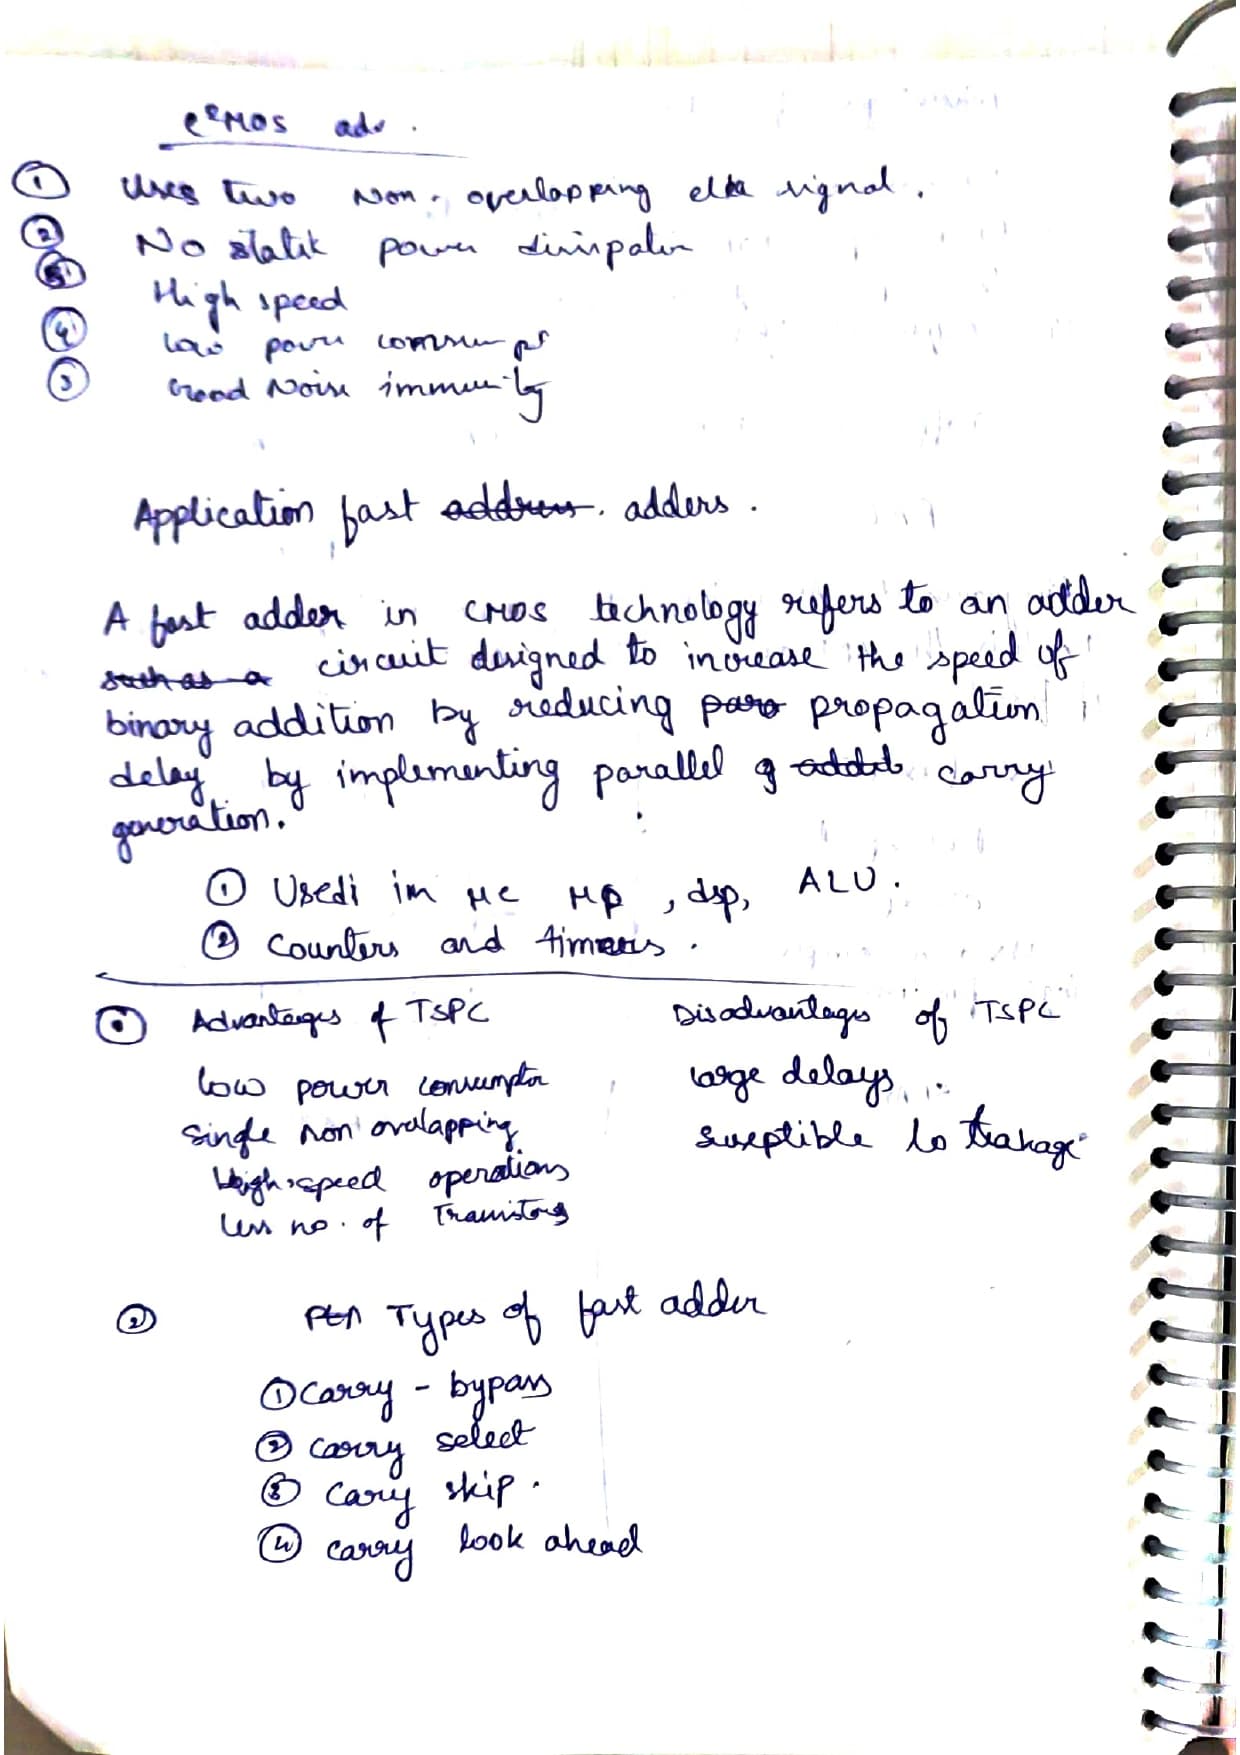 C²MOS adv.
① Uses two Non-overlapping clk signal.
② No static power dissipation
③ High speed
④ low power consumpt
⑤ Good Noise immunity
Application fast address. adders.
A fast adder in CMOS technology refers to an adder
such as a circuit designed to increase the speed of
binary addition by reducing para propagation
delay by implementing parallel g added carry
generation.
① Used in μc μp, dsp, ALU.
② Counters and timers.
① Advantages of TSPC
low power consumption
Single non ovalapping
High speed operations
less no. of Transistors
Disadvantages of TSPC
large delays
suseptible to leakage
② Types of fast adder
① Carry - bypass
② carry select
③ Cary skip.
④ carry look ahead